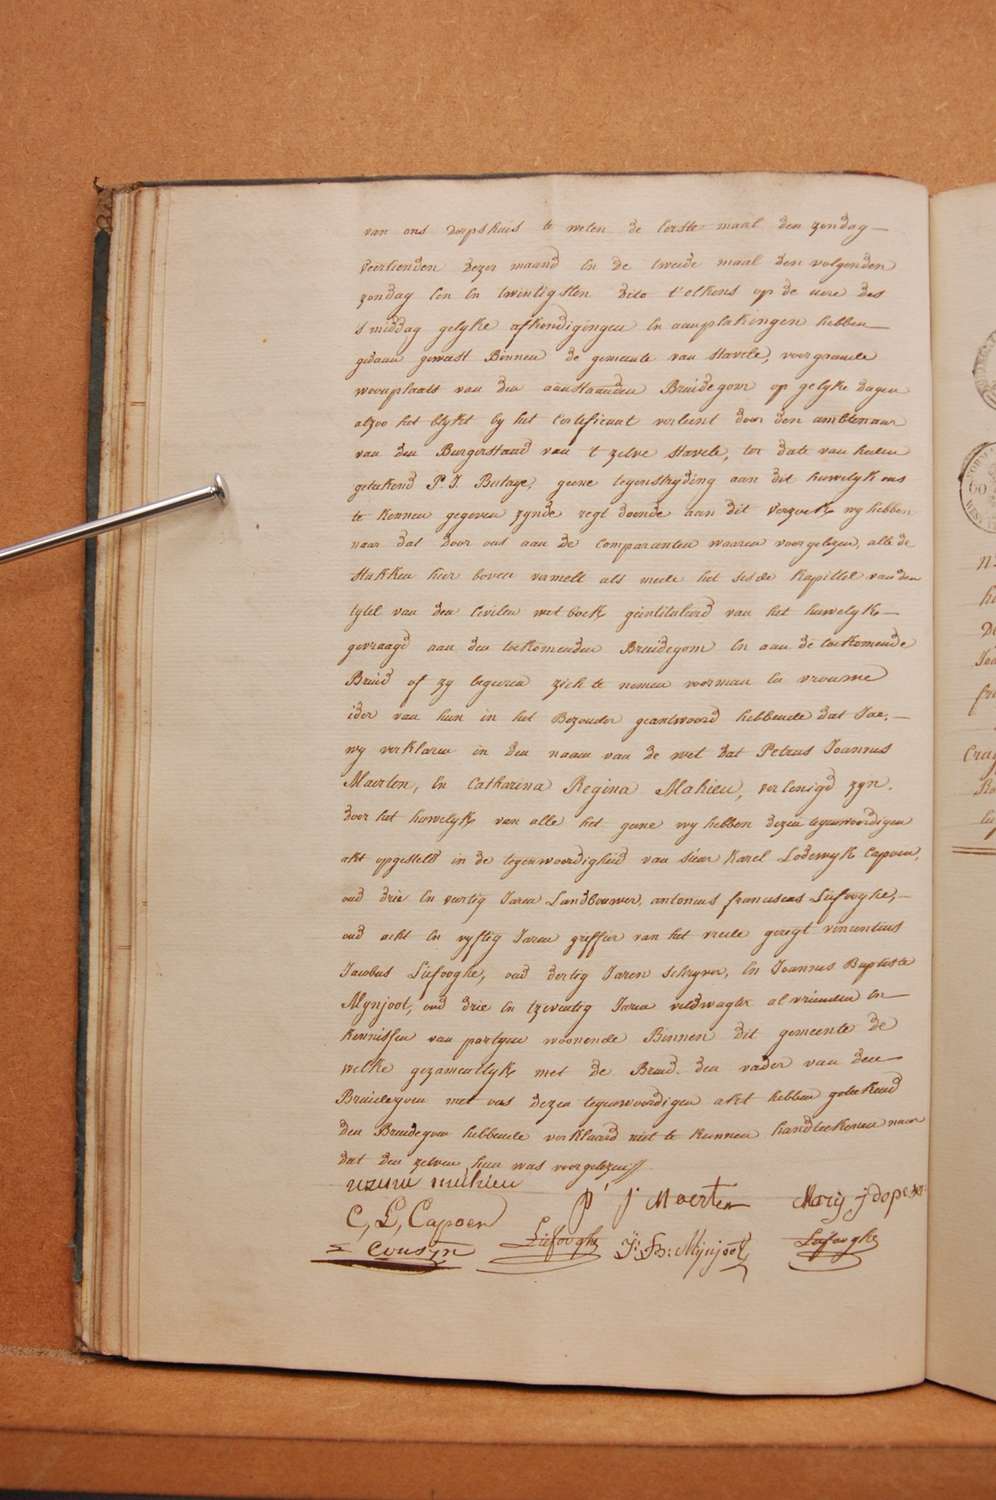 van ons dorpshuis te weten de eerste maal den zondag
veertienden dezer maand en de tweede maal den volgenden
zondag een en twintigsten dito t'elkens op de uere des
smiddag gelyke afkondigingen en aanplakingen hebben
gedaan geweest Binnen de gemeente van Stavele, voorgaende
woonplaats van den aanstaanden Bruidegom op gelyke dagen
alzoo het blykt by het Certificaat verleent door den ambtenaar
van den Burgerstand van 't zelve Stavele, ter date van heden
geteekend P. J. Butaye, geene tegenstryding aan dit huwelyk ons
te kennen gegeven zynde regt doende aan dit verzoek wy hebben
naar dat door ons aan de Comparanten waaren voorgelezen, alle de
stukken hier boven vermelt als mede het sesde kapittel van den
tytel van den Civilen wetboek geintituleerd van het huwelyk
gevraagd aan den toekomenden Bruidegom en aan de toekomende
Bruid of zy begeren zich te nemen voor man en vrouwe
ider van hun in het Bezonder geantwoord hebbende dat Jae,
wy verklaren in den naam van de wet dat Petrus Joannus
Maerten, en Catharina Regina Mahieu, vereenigd zyn
door het huwelyk van alle het geene wy hebben dezen tegenwoordigen
akt opgesteld in de tegenwoordigheid van sieur Karel Lodewyk Capoen,
oud drie en veertig Jaren Landbouwer, antonius franciscus Liefooghe,
oud acht en vyftig Jaren greffier van het vrede geregt vincentius
Jacobus Liefooghe, oud dertig Jaren schryver, en Joannus Baptiste
Mynjoot, oud drie en tzeventig Jaren veldwagter al vrienden en
kennissen van partyen woonende Binnen dit gemeente de
welke gezamentlyk met de Bruid den vader van den
Bruidegom met ons dezen tegenwoordigen akt hebben geteekend
den Bruidegom hebbende verklaard niet te kunnen handteekenen naar
dat den zelven hun was voorgelezen
mahieu P J Maerten
C, L, Capoen Liefooghe J: B: Mijnjoot Liefooghe
Cousyn